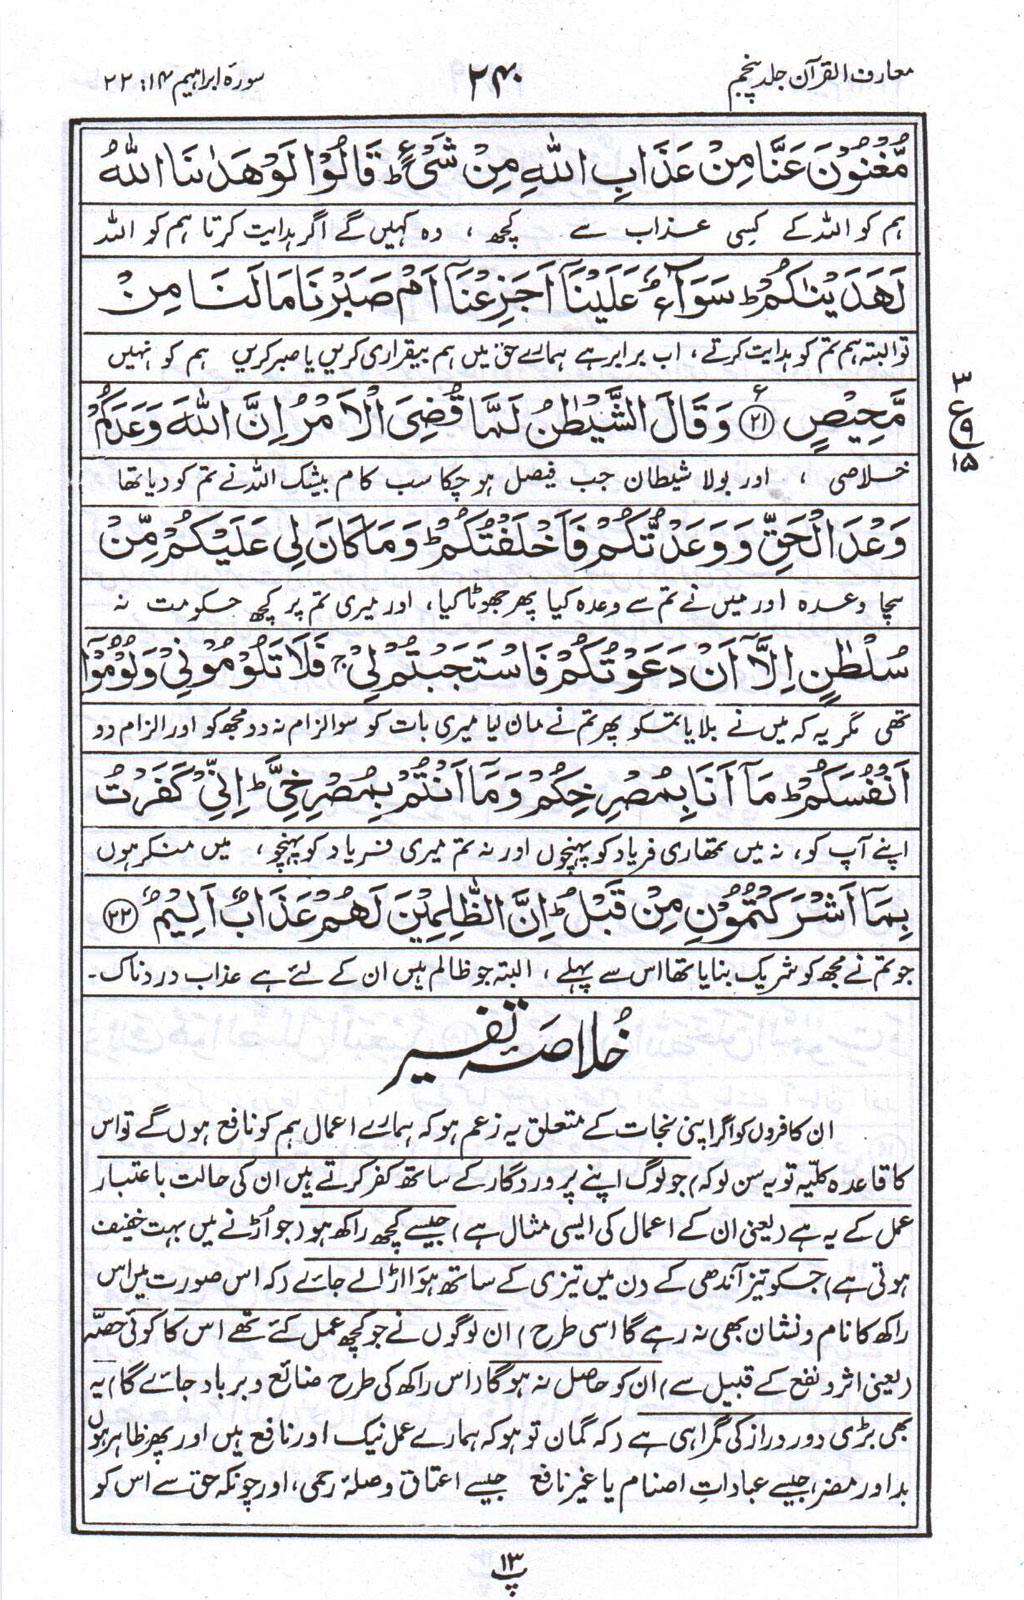 معارف القرآن جلد پنجم
۲۴۰
سورۂ ابراہیم ۱۴: ۲۲
مُّغْنُوْنَ عَنَّا مِنْ عَذَابِ اللّٰهِ مِنْ شَیْءٍ ؕ قَالُوْا لَوْ هَدٰىنَا اللّٰهُ
ہم کو اللہ کے کسی عذاب سے کچھ ، وہ کہیں گے اگر ہدایت کرتا ہم کو اللہ
لَهَدَیْنٰكُمْ ؕ سَوَآءٌ عَلَیْنَاۤ اَجَزِعْنَاۤ اَمْ صَبَرْنَا مَا لَنَا مِنْ
تو البتہ ہم تم کو ہدایت کرتے ، اب برابر ہے ہمارے حق میں ہم بیقراری کریں یا صبر کریں ہم کو نہیں
مَّحِیْصٍ ﴿۲۱﴾ وَ قَالَ الشَّیْطٰنُ لَمَّا قُضِیَ الْاَمْرُ اِنَّ اللّٰهَ وَعَدَكُمْ
۳
ع
۹
۱۵
خلاصی ، اور بولا شیطان جب فیصل ہو چکا سب کام بیشک اللہ نے تم کو دیا تھا
وَعْدَ الْحَقِّ وَ وَعَدْتُّكُمْ فَاَخْلَفْتُكُمْ ؕ وَ مَا كَانَ لِیَ عَلَیْكُمْ مِّنْ
سچا وعدہ اور میں نے تم سے وعدہ کیا پھر جھوٹا کیا، اور میری تم پر کچھ حکومت نہ
سُلْطٰنٍ اِلَّاۤ اَنْ دَعَوْتُكُمْ فَاسْتَجَبْتُمْ لِیْ ۚ فَلَا تَلُوْمُوْنِیْ وَ لُوْمُوْۤا
تھی مگر یہ کہ میں نے بلایا تمکو پھر تم نے مان لیا میری بات کو سو الزام نہ دو مجھ کو اور الزام دو
اَنْفُسَكُمْ ؕ مَاۤ اَنَا بِمُصْرِخِكُمْ وَ مَاۤ اَنْتُمْ بِمُصْرِخِیَّ ؕ اِنِّیْ كَفَرْتُ
اپنے آپ کو، نہ میں تمہاری فریاد کو پہنچوں اور نہ تم میری فریاد کو پہنچو ، میں منکر ہوں
بِمَاۤ اَشْرَكْتُمُوْنِ مِنْ قَبْلُ ؕ اِنَّ الظّٰلِمِیْنَ لَهُمْ عَذَابٌ اَلِیْمٌ ﴿۲۲﴾
جو تم نے مجھ کو شریک بنایا تھا اس سے پہلے ، البتہ جو ظالم ہیں ان کے لئے ہے عذاب دردناک۔
خُلاصۂ تفسیر
ان کافروں کو اگر اپنی نجات کے متعلق یہ زعم ہو کہ ہمارے اعمال ہم کو نافع ہوں گے تو اس
کا قاعدہ کلیہ تو یہ سن لو کہ) جو لوگ اپنے پروردگار کے ساتھ کفر کرتے ہیں ان کی حالت باعتبار
عمل کے یہ ہے (یعنی ان کے اعمال کی ایسی مثال ہے) جیسے کچھ راکھ ہو (جو اُڑنے میں بہت خفیف
ہوتی ہے) جس کو تیز آندھی کے دن میں تیزی کے ساتھ ہوا اڑا لے جائے (کہ اس صورت میں اس
راکھ کا نام و نشان بھی نہ رہے گا اسی طرح) ان لوگوں نے جو کچھ عمل کئے تھے اس کا کوئی حصّہ
(یعنی اثر و نفع کے قبیل سے) ان کو حاصل نہ ہوگا (اس راکھ کی طرح ضائع و برباد جائے گا) یہ
بھی بڑی دور دراز کی گمراہی ہے (کہ گمان تو ہو کہ ہمارے عمل نیک اور نافع ہیں اور پھر ظاہر ہوں
بد اور مضر، جیسے عباداتِ اصنام یا غیر نافع جیسے اعتاق و صلۂ رحمی، اور چونکہ حق سے اس کو
پ ۱۳